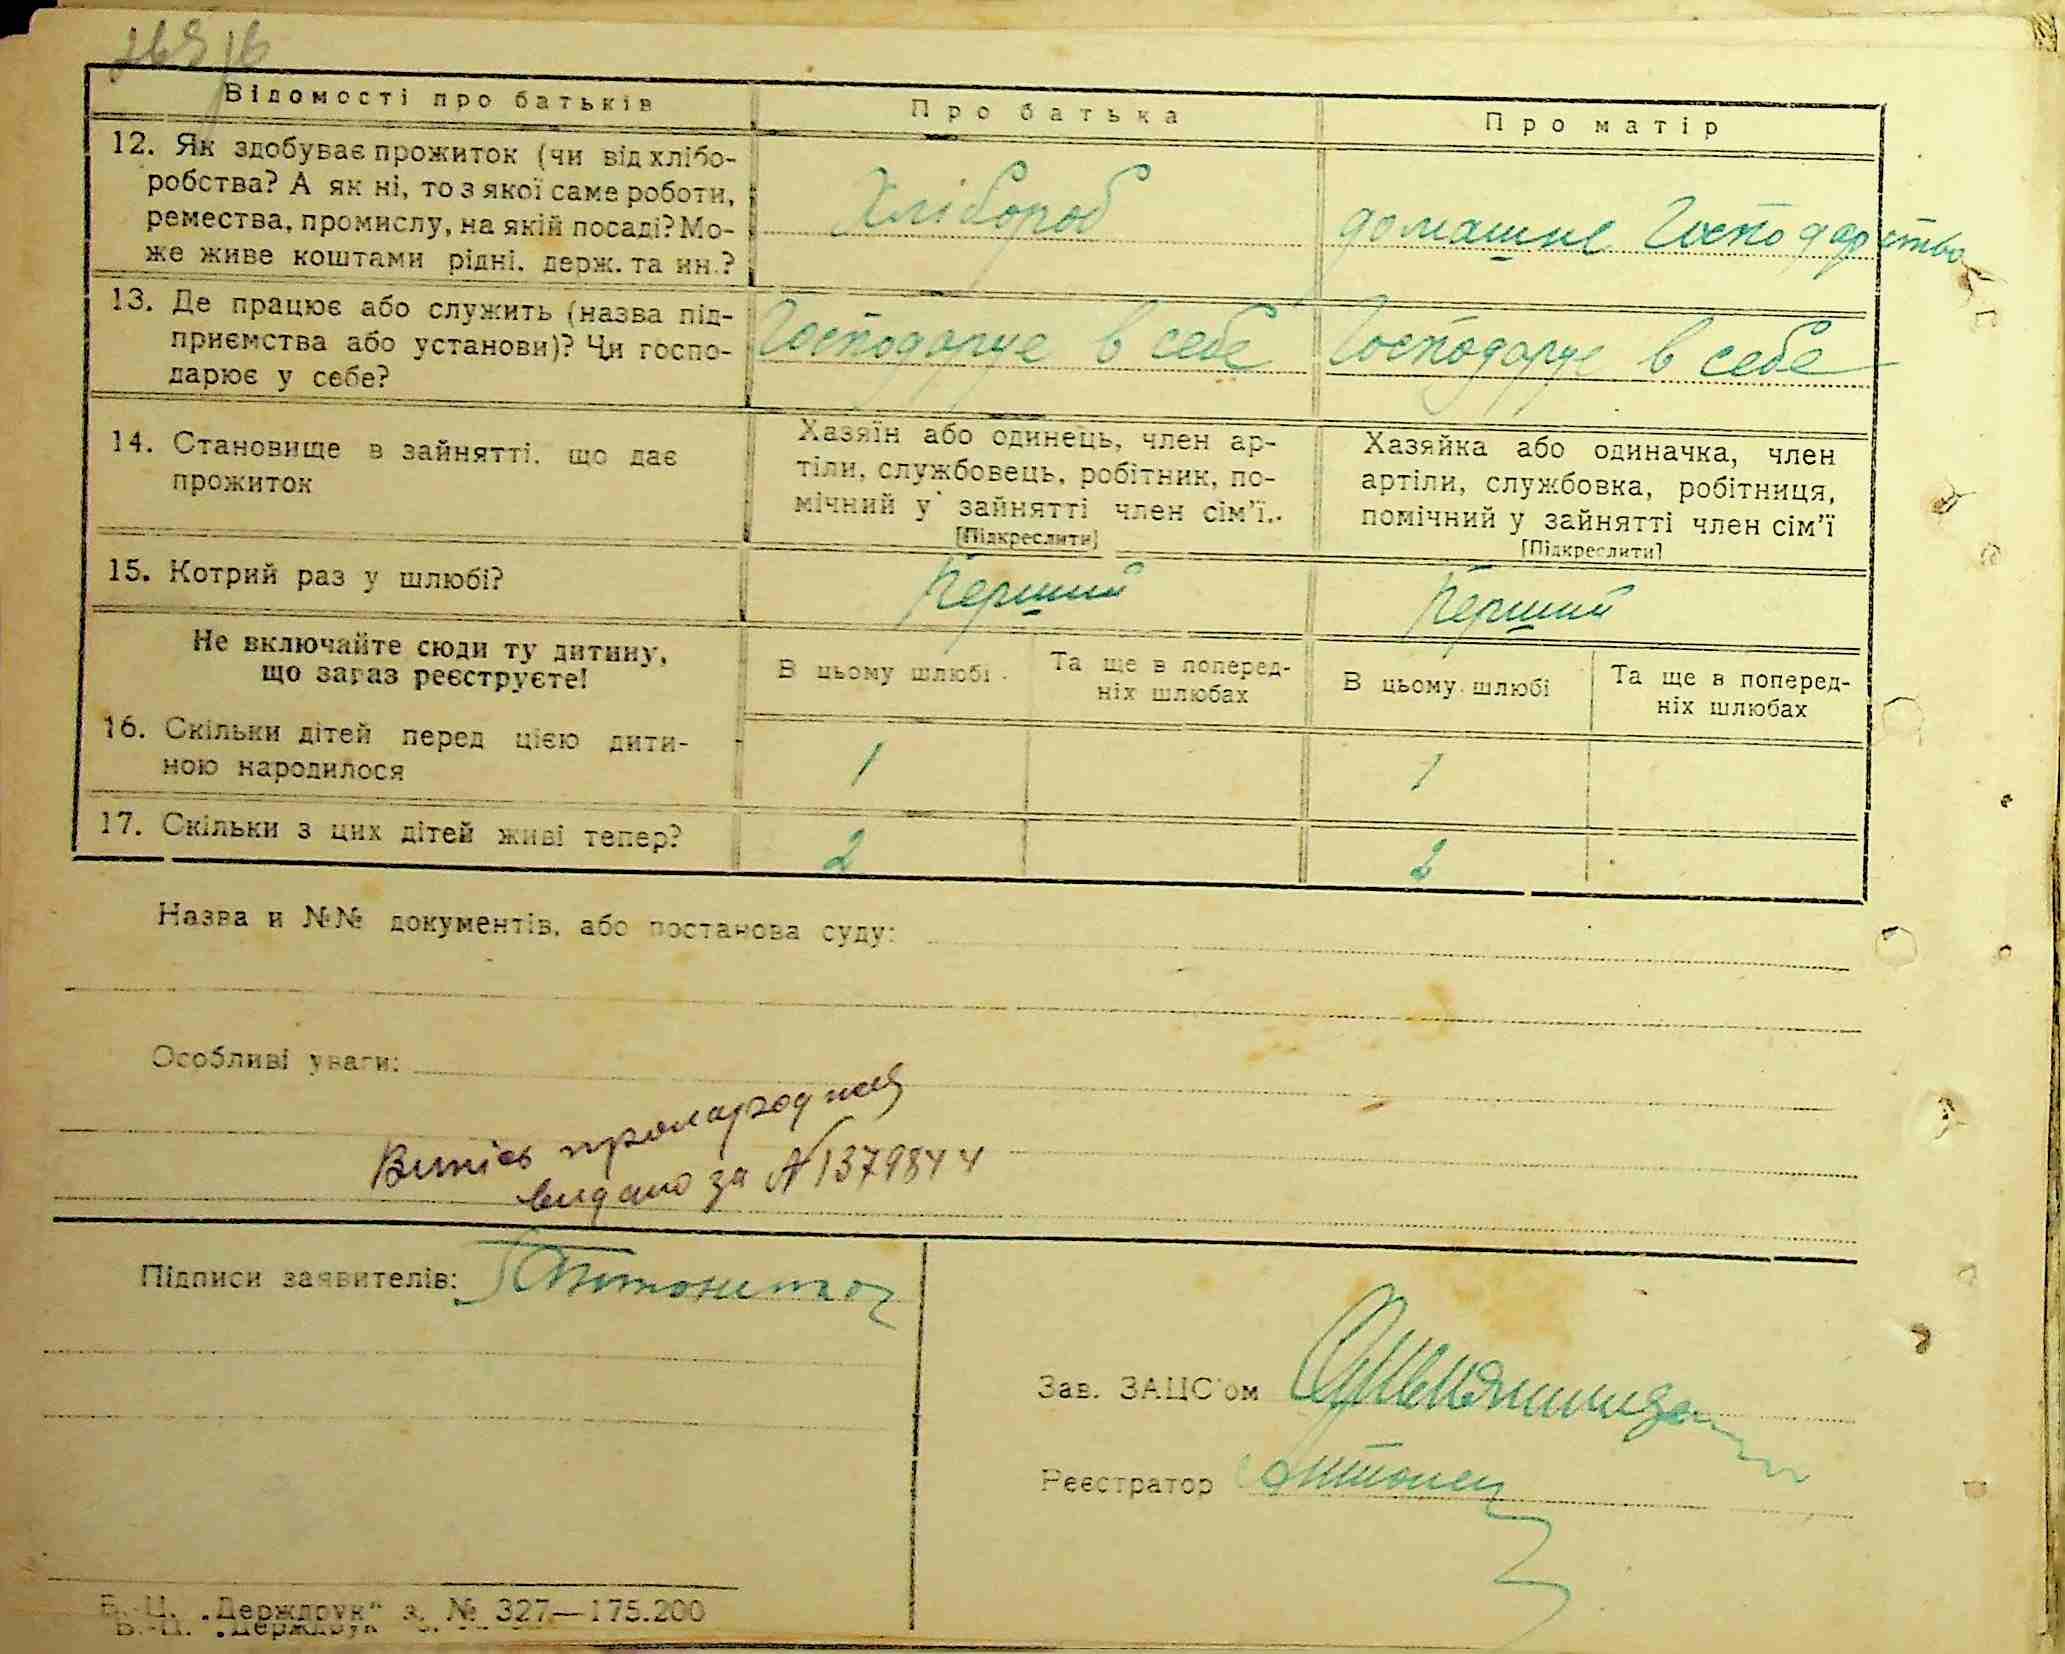 Відомості про батьків
Про батька
Про матір
12. Як здобуває прожиток (чи від хлібо-
робства? А як ні, то з якої саме роботи,
ремества, промислу, на якій посаді? Мо-
же живе коштами рідні, держ. та ин.?
Хлібороб
домашнє Господарство
13. Де працює або служить (назва під-
приємства або установи)? Чи госпо-
дарює у себе?
Господарує в себе
Господарує в себе
14. Становище в зайнятті, що дає
прожиток
Хазяїн або одинець, член ар-
тіли, службовець, робітник, по-
мічний у зайнятті член сім'ї.
[Підкреслити]
Хазяйка або одиначка, член
артіли, службовка, робітниця,
помічний у зайнятті член сім'ї
[Підкреслити]
15. Котрий раз у шлюбі?
Перший
Перший
Не включайте сюди ту дитину,
що зараз реєструєте!
В цьому шлюбі
Та ще в поперед-
ніх шлюбах
В цьому шлюбі
Та ще в поперед-
ніх шлюбах
16. Скільки дітей перед цією дити-
ною народилося
1
1
17. Скільки з цих дітей живі тепер?
2
2
Назва и №№ документів, або постанова суду:
Особливі уваги:
Випись про
видано за №1379844
Підписи заявителів:
Зав. ЗАЦС'ом
Реєстратор
Б.-Ц. „Держдрук" з. № 327—175.200